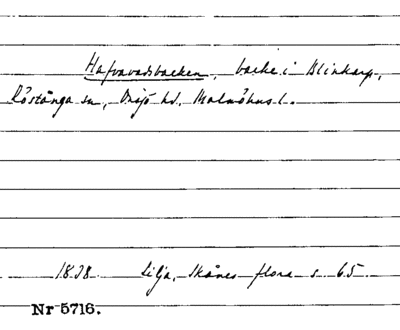 Hafvavadsbacken, backe i Blinkarp,
Röstånga sn, Onsjö hd, Malmöhus l.
1838 Lilja, Skånes flora s 65.
Nr 5716.